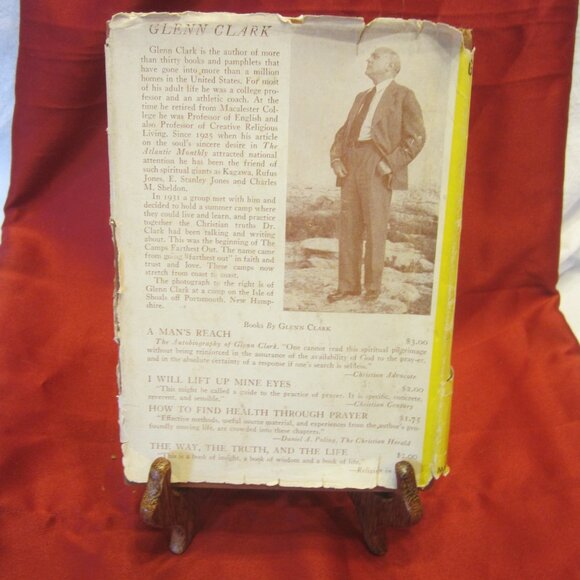 GLENN CLARK
Glenn Clark is the author of more
than thirty books and pamphlets that
have gone into more than a million
homes in the United States. For most
of his adult life he was a college pro-
fessor and an athletic coach. At the
time he retired from Macalester Col-
lege he was Professor of English and
also Professor of Creative Religious
Living. Since 1925 when his article
on the soul's sincere desire in The
Atlantic Monthly attracted national
attention he has been the friend of
such spiritual giants as Kagawa, Rufus
Jones, E. Stanley Jones and Charles
M. Sheldon.
In 1931 a group met with him and
decided to hold a summer camp where
they could live and learn, and practice
together the Christian truths Dr.
Clark had been talking and writing
about. This was the beginning of The
Camps Farthest Out. The name came
from going "farthest out" in faith and
trust and love. These camps now
stretch from coast to coast.
The photograph to the right is of
Glenn Clark at a camp on the Isle of
Shoals off Portsmouth, New Hamp-
shire.
Books By GLENN CLARK
A MAN'S REACH $3.00
The Autobiography of Glenn Clark. "One cannot read this spiritual pilgrimage
without being reinforced in the assurance of the availability of God to the pray-er,
and in the absolute certainty of a response if one's search is selfless."
—Christian Advocate
I WILL LIFT UP MINE EYES $2.00
"This might be called a guide to the practice of prayer. It is specific, concrete,
reverent, and sensible." —Christian Century
HOW TO FIND HEALTH THROUGH PRAYER $1.75
"Effective methods, useful source material, and experiences from the author's pro-
foundly moving life, are crowded into these chapters."
—Daniel A. Poling, The Christian Herald
THE WAY, THE TRUTH, AND THE LIFE $2.00
"This is a book of insight, a book of wisdom and a book of life."
—Religion in